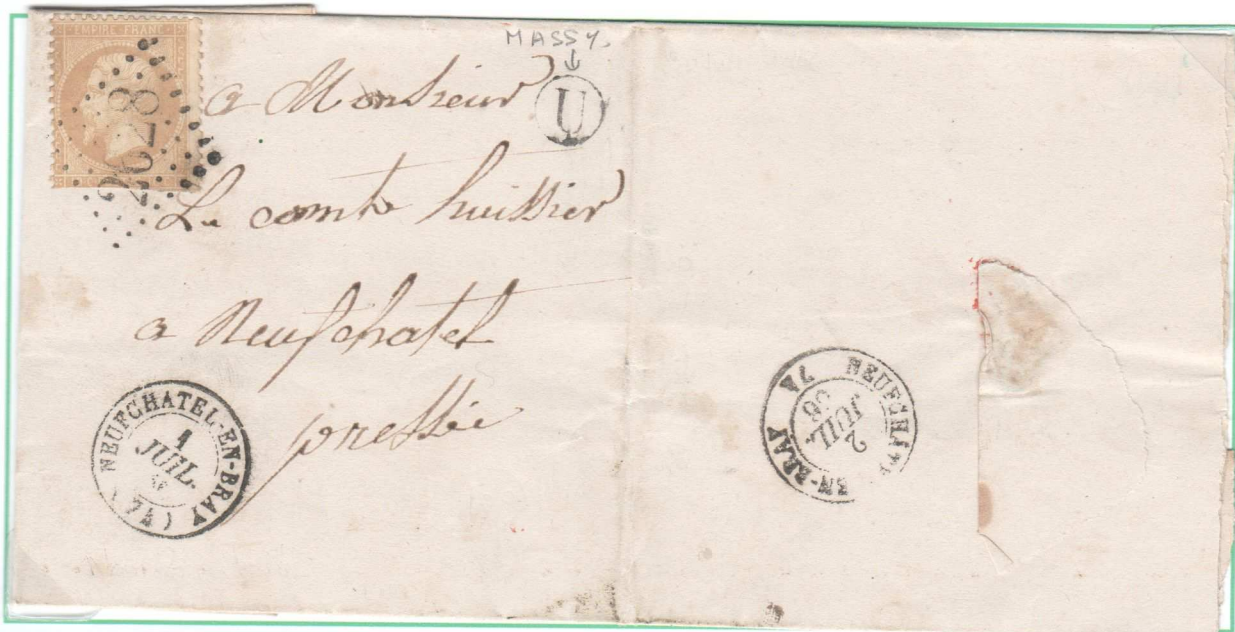 EMPIRE FRANC
2628
MASSY.
U
a Monsieur
Le comte huissier
a Neufchatel
pressée
NEUFCHATEL-EN-BRAY (74)
1
JUIL.
NEUFCHAT EN-BRAY 74
2
JUIL.